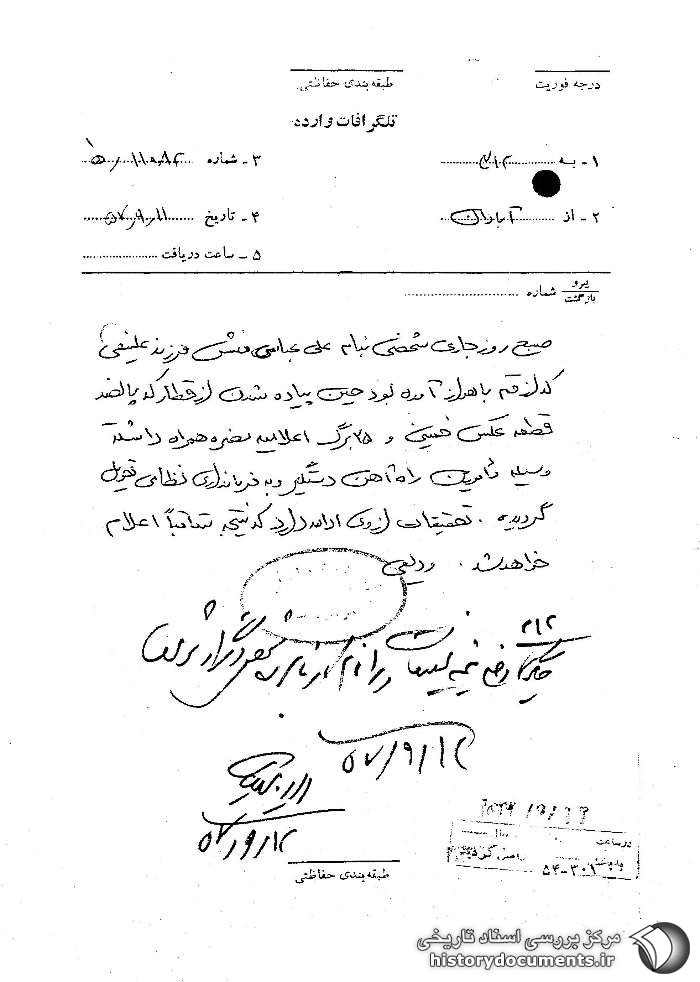 درجه فوریت
طبقه‌بندی حفاظتی
تلگرافات وارده
۱ - به ۳۱۲
۳ - شماره
۲ - از آبادان
۴ - تاریخ ۵۷٫۹٫۱۱
۵ - ساعت دریافت
پیرو
بازگشت شماره
صبح روز جاری شخصی بنام علی عباسی منش فرزند
که از قم باهواز آمده بود حین پیاده شدن از قطار که پانصد
قطعه عکس خمینی و ۲۵ برگ اعلامیه مضره همراه داشته
وسیله مامورین راه آهن دستگیر و به فرمانداری نظامی تحویل
گردیده . تحقیقات از وی ادامه دارد که نتیجه متعاقباً اعلام
خواهد شد .
۳۱۲
۵۷/۹/۱۲
۵۷/۹/۱۲
در ساعت
۵۴-۳۰۱
طبقه‌بندی حفاظتی
مرکز بررسی اسناد تاریخی
historydocuments.ir